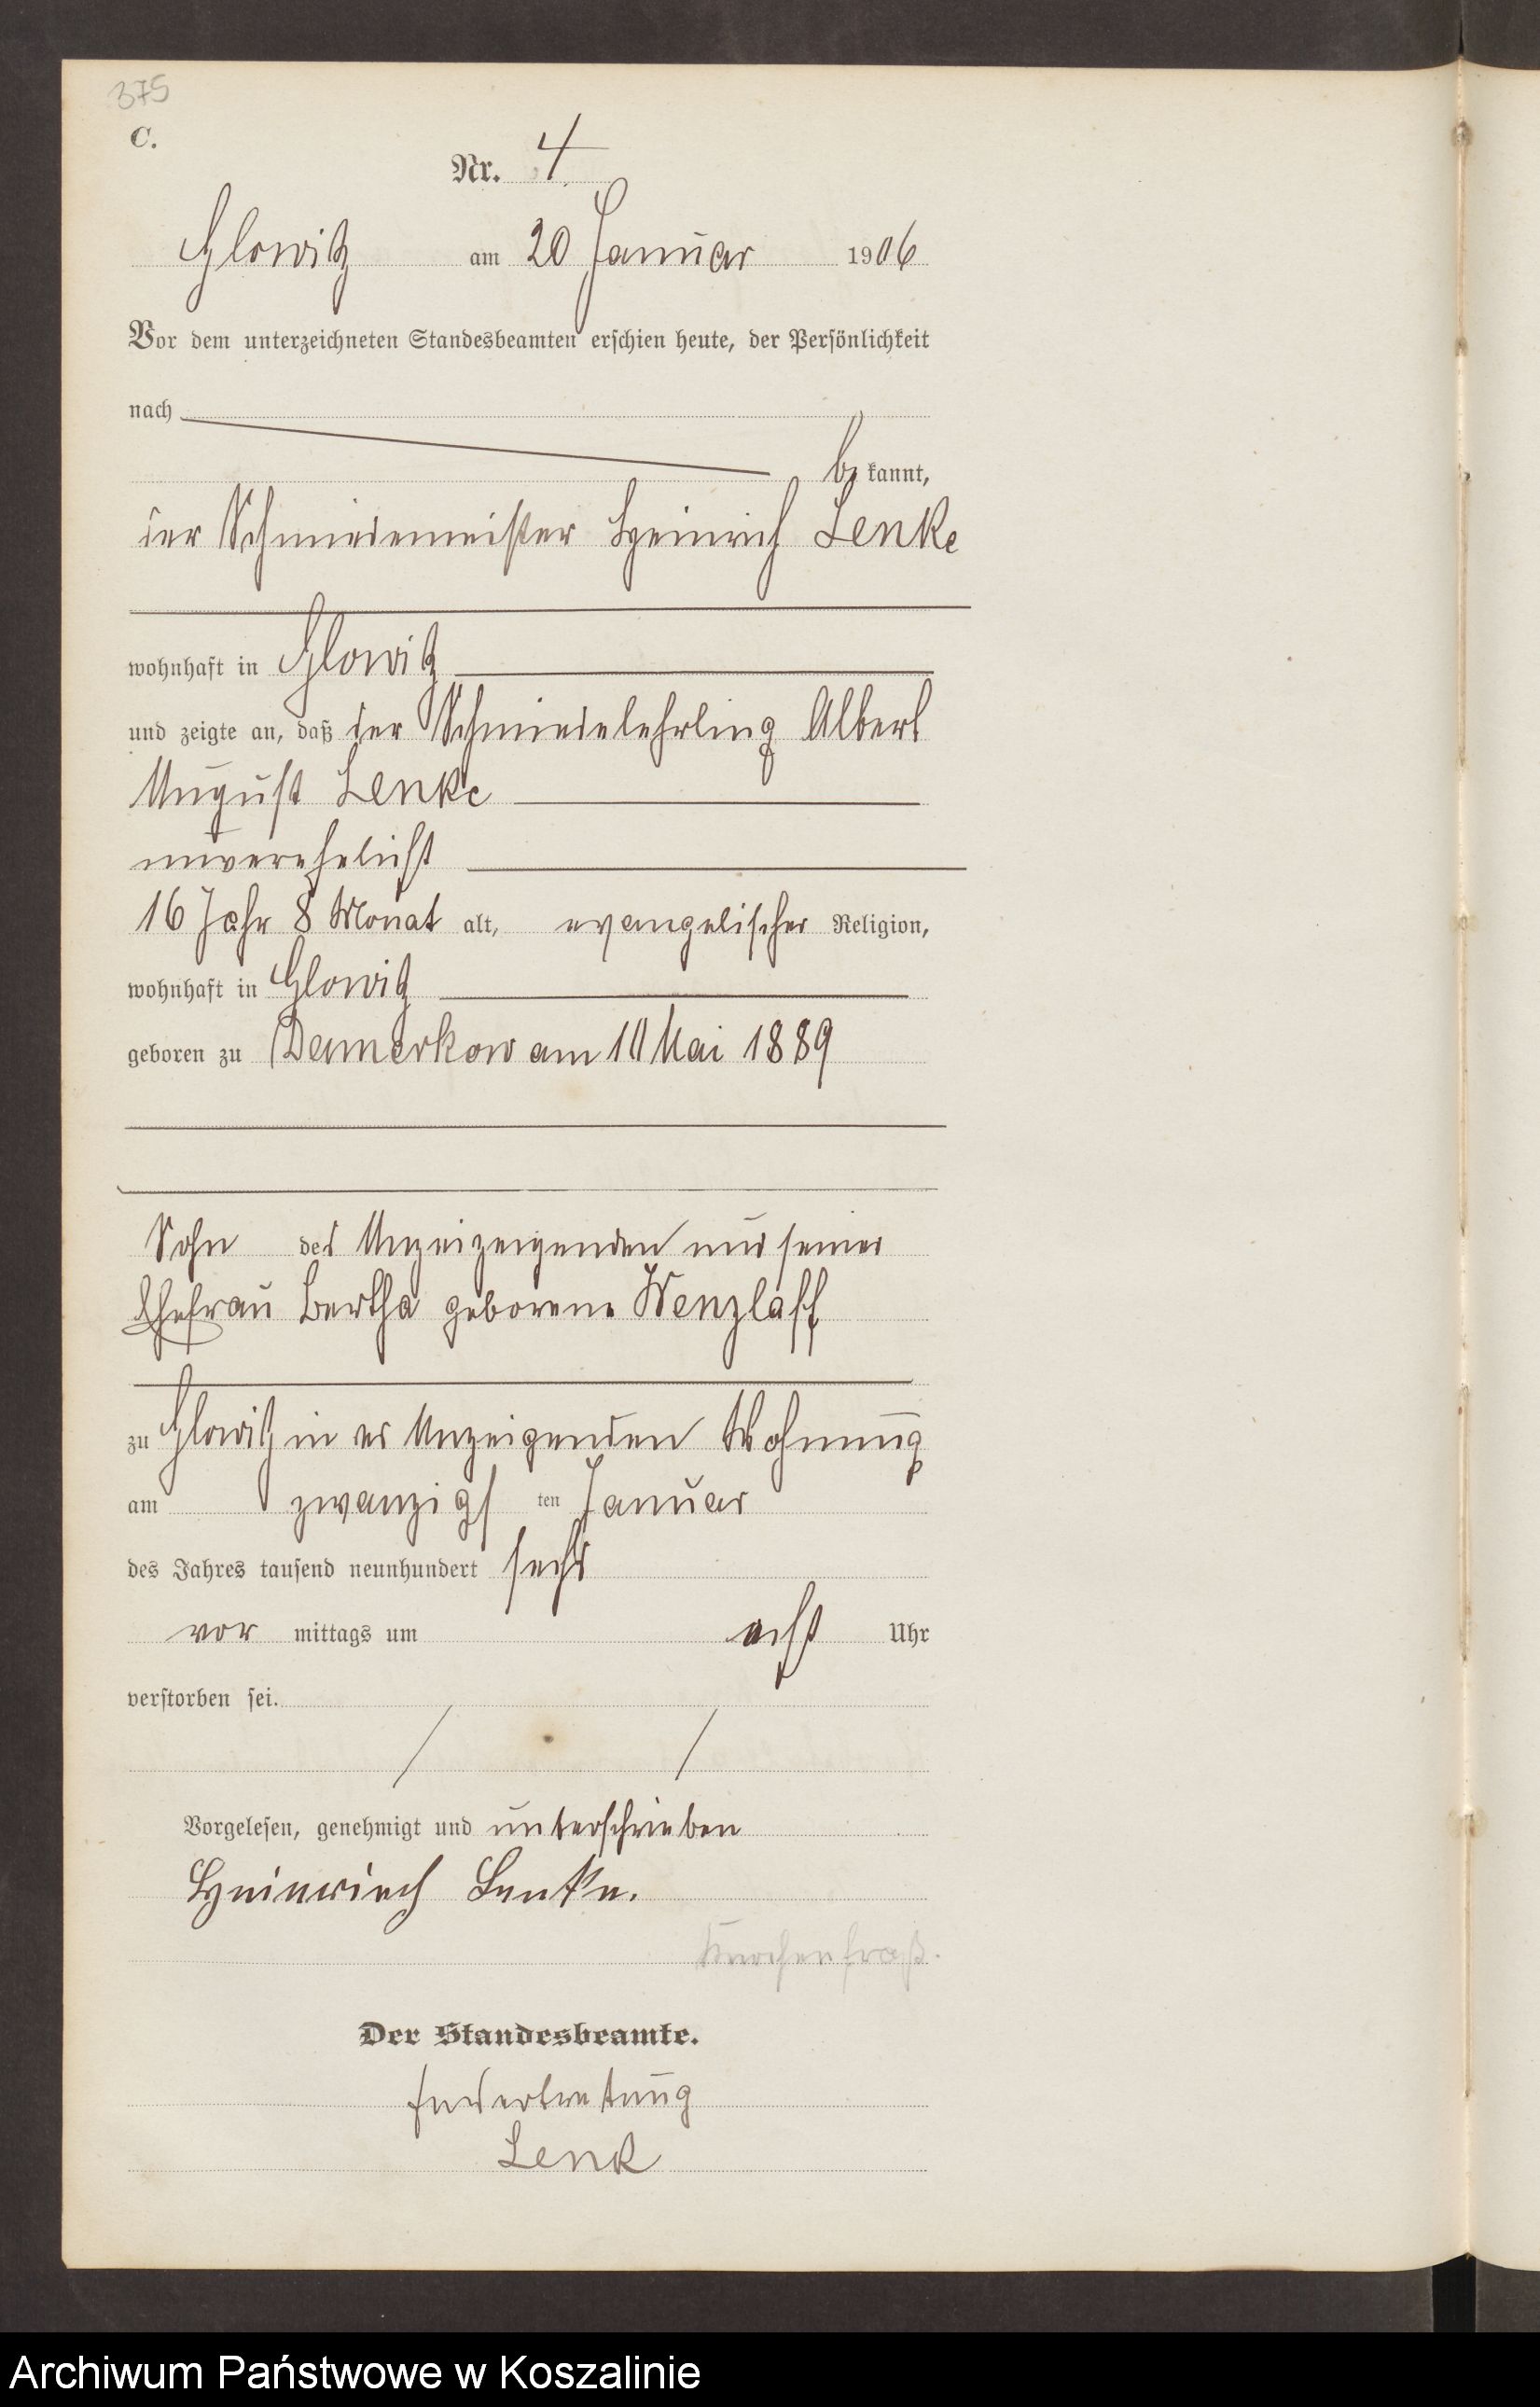 375
C.
Nr. 4
Glowitz am 20 Januar 1906
Vor dem unterzeichneten Standesbeamten erschien heute, der Persönlichkeit
nach
be kannt,
der Schmiedemeister Heinrich Lenke
wohnhaft in Glowitz
und zeigte an, daß der Schmiedelehrling Albert
August Lenke
unverehelicht
16 Jahr 8 Monat alt, evangelischer Religion,
wohnhaft in Glowitz
geboren zu Damerkow am 10 Mai 1889
Sohn des Anzeizeigenden und seiner
Ehefrau Bertha geborene Wenzlaff
zu Glowitz in des Anzeigenden Wohnung
am zwanzigs ten Januar
des Jahres tausend neunhundert sechs
vor mittags um acht Uhr
verstorben sei.
Vorgelesen, genehmigt und unterschrieben
Heinriech Lenke.
Knochenfraß.
Der Standesbeamte.
Lenk
Archiwum Państwowe w Koszalinie